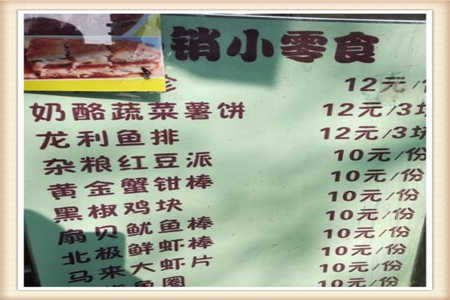 销小零食
12元/份
奶酪蔬菜薯饼 12元/3块
龙利鱼排 12元/3块
杂粮红豆派 10元/份
黄金蟹钳棒 10元/份
黑椒鸡块 10元/份
扇贝鱿鱼棒 10元/份
北极鲜虾棒 10元/份
马来大虾片 10元/份
鱼圈 10元/份